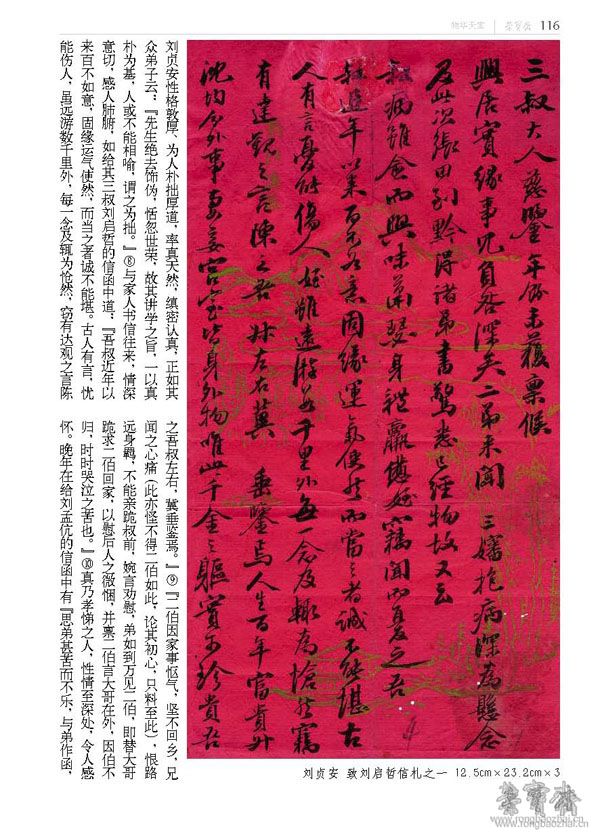 物华天宝 荣宝斋 116
三叔大人慈鑒年餘未獲稟候
興居實緣事冗負咎深矣二弟来聞 三嬸抱病深為懸念
及此次張田別黔得诸弟書驚悉已經物故又云
叔病雖愈而興味蕭瑟身體羸憊姪竊聞而憂之吾
叔近年以来百不如意固緣運氣使然而當之者誠不能堪古
人有言憂能傷人姪雖遠游数千里外每一念及輒為愴然竊
有達觀之言陳之吾叔左右冀 垂鑒焉人生百年富貴升
沈均分外事妻妾宫室皆身外物唯此千金之軀實可珍貴吾
刘贞安 致刘启哲信札之一 12.5cm×23.2cm×3
刘贞安性格敦厚，为人朴拙厚道，率真天然，缜密认真，正如其
众弟子云：『先生绝去饰伪，恬忽世荣，故其讲学之旨，一以真
朴为基，人或不能相喻，谓之为拙。』⑧与家人书信往来，情深
意切，感人肺腑，如给其三叔刘启哲的信函中道，『吾叔近年以
来百不如意，固缘运气使然，而当之者诚不能堪。古人有言，忧
能伤人，虽远游数千里外，每一念及辄为怆然，窃有达观之言陈
之吾叔左右，冀垂鉴焉。』⑨『二伯因家事怄气，坚不回乡，兄
闻之心痛（此亦怪不得二伯如此，论其初心，只料至此），恨路
远身羁，不能亲跪叔前，婉言劝慰，弟如到万见二伯，即替大哥
跪求二伯回家，以慰后人之微悃，并禀二伯言大哥在外，因伯不
归，时时哭泣之苦也。』⑩真乃孝悌之人，性情至深处，令人感
怀。晚年在给刘孟伉的信函中有『思弟甚苦而不乐，与弟作函，
荣宝斋
www.rongbaozhai.cn